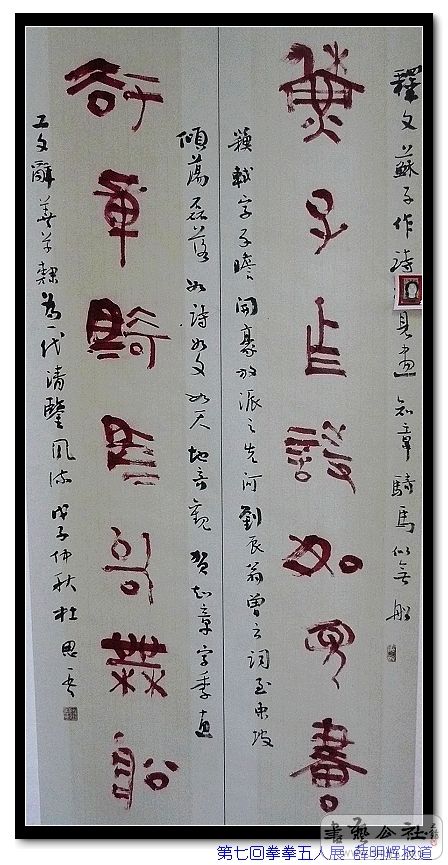 釋文蘇子作詩見畫知章騎馬似乘船
蘇子作詩如見畫
蘇軾字子瞻開豪放派之先河劉辰翁曾云詞至東坡
傾蕩磊落如詩如文如天地奇觀賀知章字季真
知章騎馬似乘船
工文辭善草隸為一代清鑒風流戊子仲秋杜思
書藝公社
第七回拳拳五人展 薛明辉报道